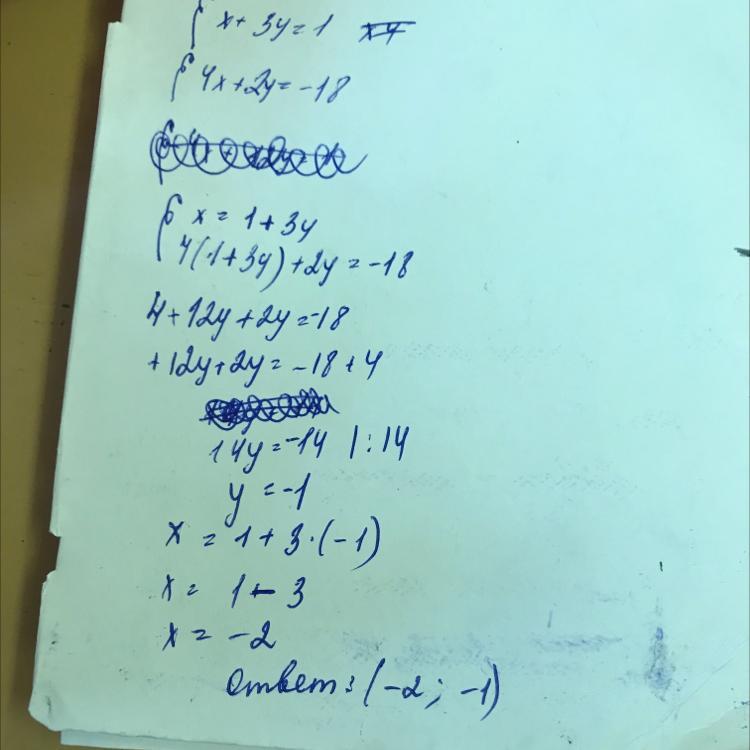 { x + 3y = 1
{ 4x + 2y = -18
{ x = 1 + 3y
4(1 + 3y) + 2y = -18
4 + 12y + 2y = -18
+12y + 2y = -18 + 4
14y = -14 | : 14
y = -1
x = 1 + 3 · (-1)
x = 1 - 3
x = -2
ответ: (-2; -1)